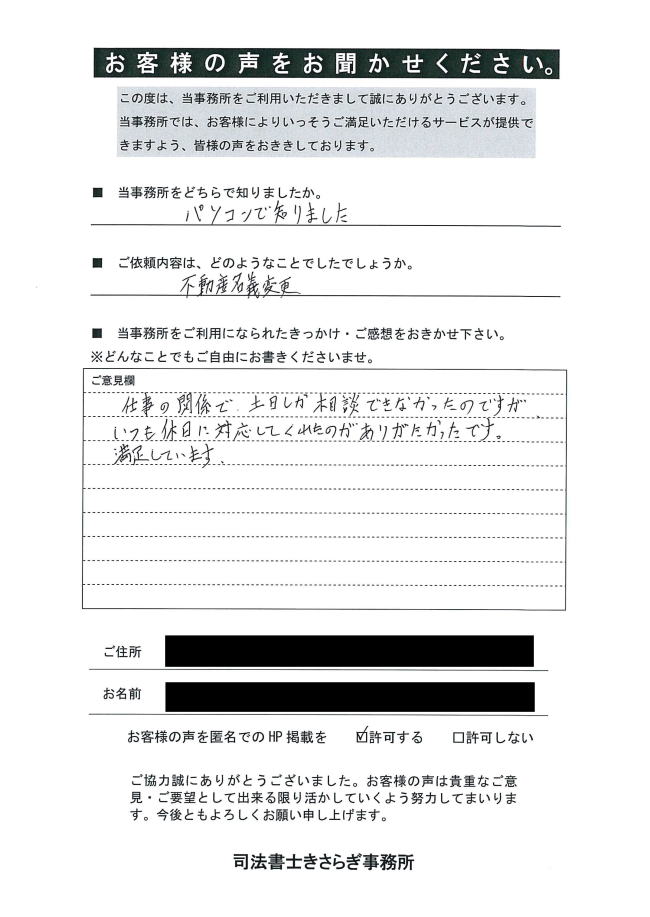 お客様の声をお聞かせください。
この度は、当事務所をご利用いただきまして誠にありがとうございます。
当事務所では、お客様によりいっそうご満足いただけるサービスが提供で
きますよう、皆様の声をおききしております。
■ 当事務所をどちらで知りましたか。
パソコンで知りました
■ ご依頼内容は、どのようなことでしたでしょうか。
不動産名義変更
■ 当事務所をご利用になられたきっかけ・ご感想をおきかせ下さい。
※どんなことでもご自由にお書きくださいませ。
ご意見欄
仕事の関係で、土日しか相談できなかったのですが、
いつも休日に対応してくれたのがありがたかったです。
満足しています。
ご住所
お名前
お客様の声を匿名でのHP掲載を ☑許可する □許可しない
ご協力誠にありがとうございました。お客様の声は貴重なご意
見・ご要望として出来る限り活かしていくよう努力してまいりま
す。今後ともよろしくお願い申し上げます。
司法書士きさらぎ事務所